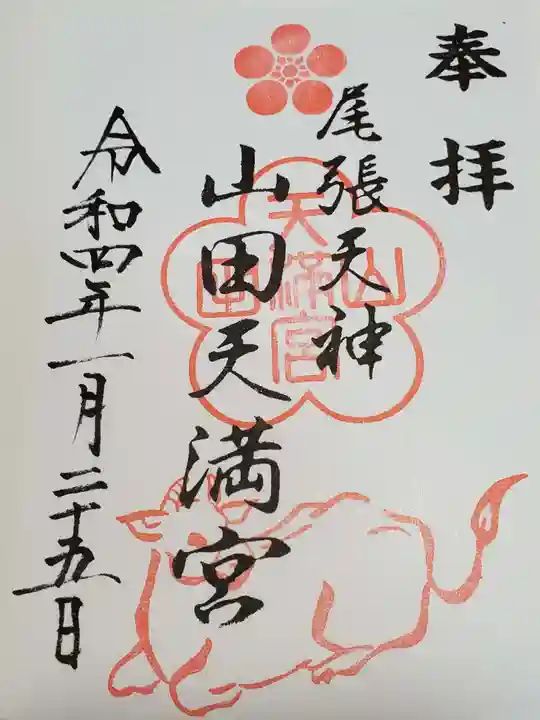 奉拝
尾張天神
山田天満宮
令和四年一月二十五日
山田
天満宮